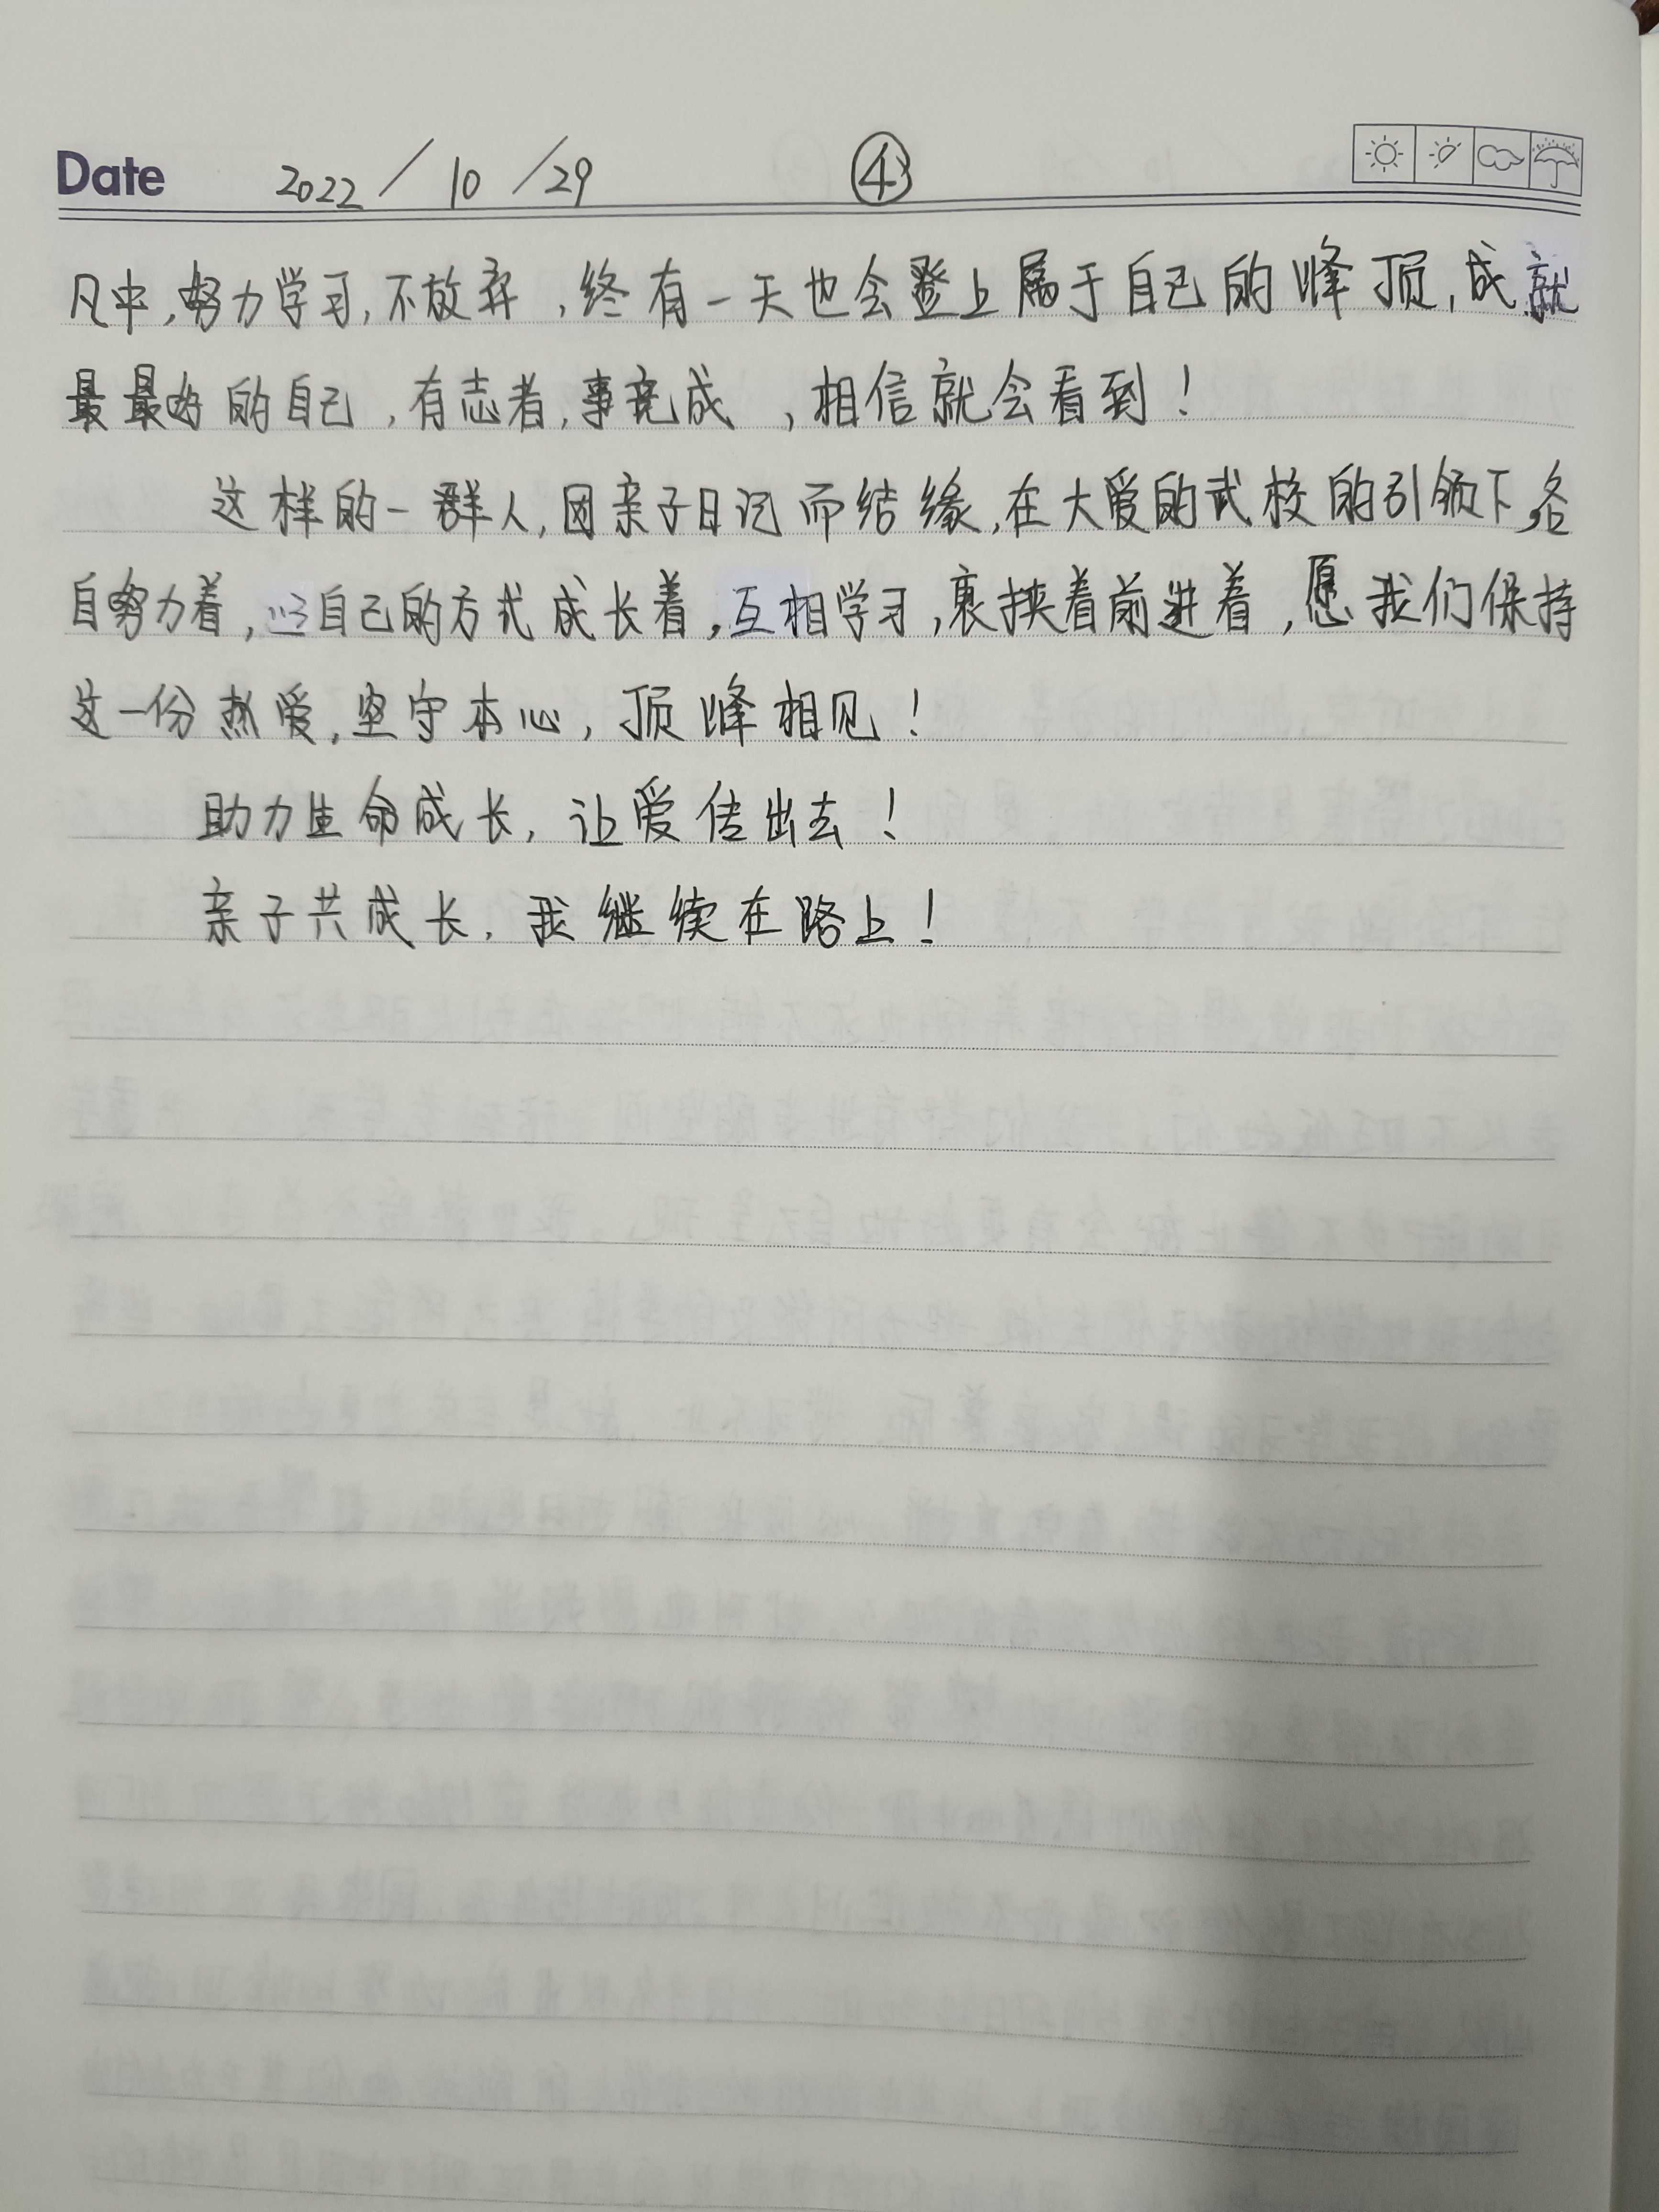 Date 2022/10/29 ④
凡中,努力学习,不放弃,终有一天也会登上属于自己的峰顶,成就
最最好的自己,有志者,事竟成,相信就会看到!
这样的一群人,因亲子日记而结缘,在大爱的武校的引领下,各
自努力着,以自己的方式成长着,互相学习,裹挟着前进着,愿我们保持
这一份热爱,坚守本心,顶峰相见!
助力生命成长,让爱传出去!
亲子共成长,我继续在路上!